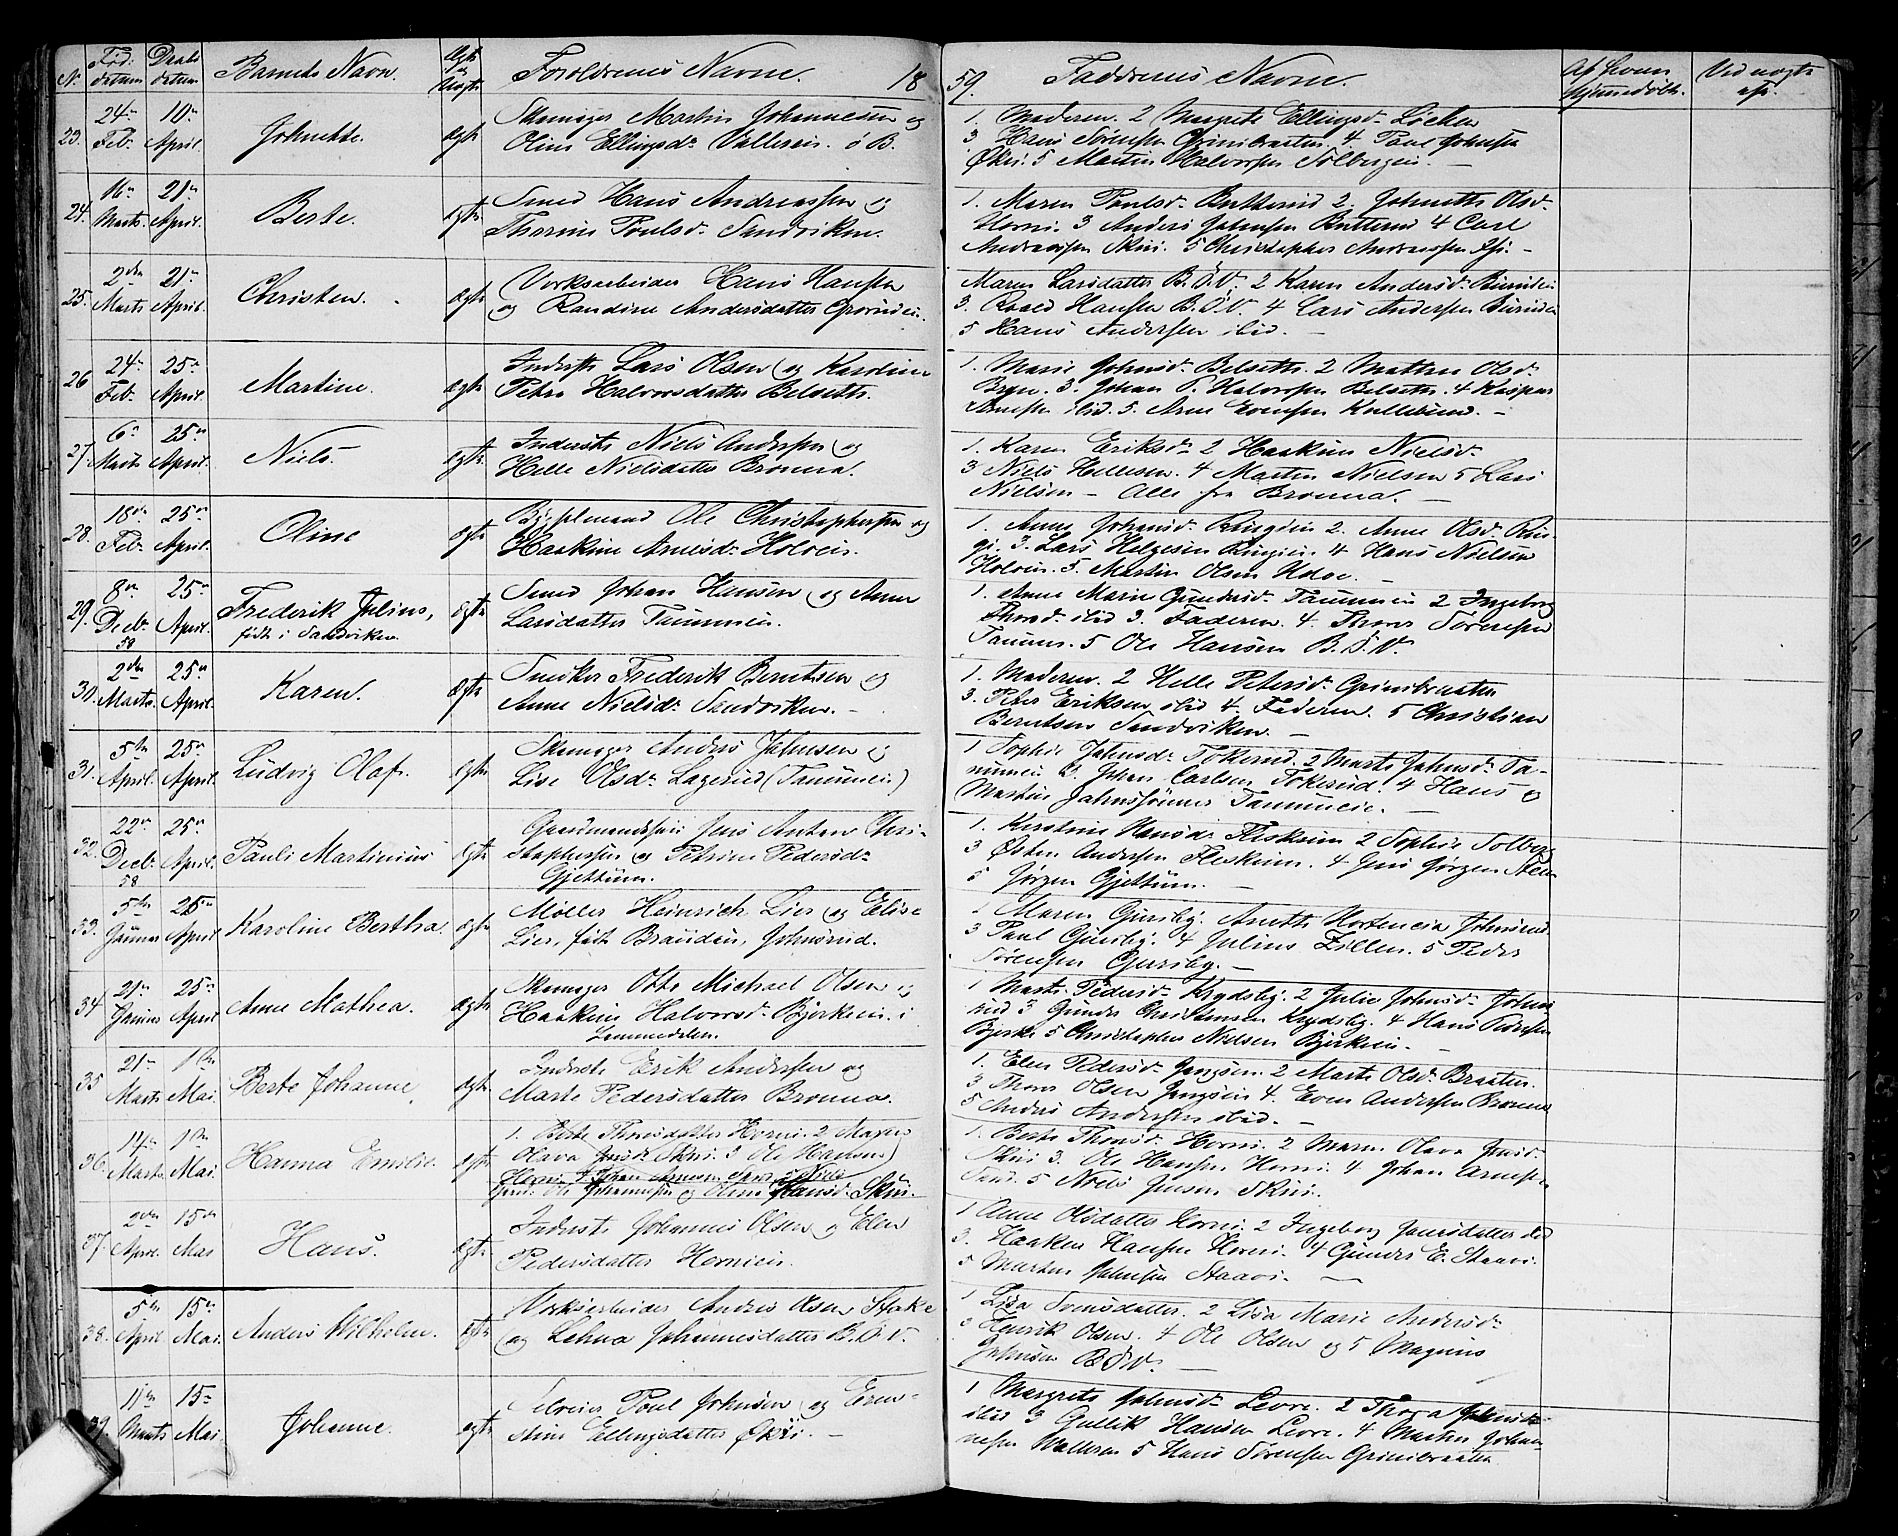 N. Fød: datum Daabs datum Barnets Navn. Ægte Uægte Forældrenes Navne. 18
59. Faddernes Navne. Af hvem hjemmedøbt.
23. 24de Feb. 10de April. Johnette. ægte Skomager Martin Johannesen og
Oline Ellingsdr. Vallerein. ø B.
1. Moderen. 2 Margrete Ellingsdr. Løcken
3 Hans Sørensen Grinibraaten. 4. Paul Johnsen
Økri. 5 Martin Halvorsen Solbergein. —
24. 16de Marts. 21de April. Berte. ægte Smed Hans Andreassen og
Thorine Poulsdr. Sandviken.
1. Maren Poulsdr. Butterud 2. Johnette Olsdr.
Horni. 3 Anders Johnsen Butterud 4 Carl
Andreasen Skui. 5 Christopher Andreasen
25. 2den Marts 21de April. Christen. ægte Værksarbeider Hans Hansen
og Randine Andersdatter Grorudein.
Maren Larsdatter B. Ö. V. 2 Karen Andersdr.
3. Roald Hansen B. Ö. V. 4 Lars Andersen
5 Hans Andersen ibid. —
26 24de Feb. 25de April. Martine. ægte Inderste Lars Olsen og Karoline
Petra Halvorsdatter Belseth.
1. Marie Johnsdr. Belseth. 2 Mathea Olsdr.
Bryn. 3. Johan P. Halvorsen Belseth. 4 Kaspar
Arnesen ibid. 5. Arne Evensen Kullerud. —
27. 6te Marts 25de April. Niels. ægte Inderste Niels Andersen og
Helle Nielsdatter Brønna.
1. Karen Eriksdr. 2 Haakine Nielsdr.
3 Niels Hellesen. 4 Martin Nielsen 5 Lars
Nielsen — Alle fra Brønna. —
28. 18de Feb. 25de April. Oline ægte Bygselmand Ole Christophersen og
Haakine Arnesdr. Holvein.
1. Anne Johansdr. Ringiein 2. Anne Olsdr. Rin-
gi. 3. Lars Helgesen Ringiein. 4 Hans Nielsen
Holvein. 5. Martin Olsen —
29. 8de Decbr. 58 25de April. Frederik Julius, ægte Smed Johan Hansen og Anne
født i Sandviken Larsdatter Tanumein.
1. Anne Marie Gundersdr. Tanumein 2 Ingeborg
Thorsdr. ibid 3. Faderen. 4. Thorer Sørensen
Tanum. 5 Ole Hansen B. Ö. V.
30. 2den Marts. 25de April. Karen. ægte Snedker Frederik Berntsen og
Anne Nielsdr. Sandviken. —
1. Moderen. 2 Helle Petersdr. Grinibraaten
3. Peter Eriksen ibid 4. Faderen. 5 Christian
Berntsen Sandviken. —
31. 5te April. 25de April. Ludvig Olaf. ægte Skomager Anders Johnsen og
Lise Olsdr. Lagerud (Tanumein.)
1 Sophie Johnsdr. Tokerud. 2 Marte Johnsdr. Ta-
numein 3. Johan Carlsen Tokerud. 4 Hans og
Martin Johnssønner Tanumein. —
32. 22de Decbr. 58 25de April. Pauli Martinius ægte Gaardmandssøn Jens Anton Chri-
stophersen og Petrine Pedersdr.
Gjettum.
1. Kirstine Hansdr. Fleskum 2 Sophie Solberg
3 Østen Andersen Fleskum. 4 Jens Jørgen
5 Jørgen Gjettum. —
33. 5te Januar 25de April Karoline Bertha. ægte Møller Heinrich Lier og Elise
Lier, født Brauden, Johnsrud.
1 Maren Gjersby. Anette Hortensia Johnsrud
3 Paul Gjersby. 4 Julius Zillen. 5 Peder
Sørensen Gjersby. —
34 21de Januar 25de April Anne Mathea. ægte Skomager Otto Michael Olsen og
Haakine Halvorsdr. Bjerkein i
Lommedalen.
1 Marte Pedersdr. Krydsby. 2 Julie Johnsdr. Johns-
rud 3 Gunder Christensen Krydsby. 4 Hans Pedersen
Bjerke 5 Christopher Nielsen Bjerkein. —
35 21de Marts 1ste Mai. Berte Johanne, ægte Inderste Erik Andersen og
Marte Pedersdatter Brønna.
1. Elen Pedersdr. Jongsein. 2 Marte Olsdr. Braaten.
3 Thorer Olsen Jongsein 4. Even Andersen Brønna
5 Anders Andersen ibid. —
36. 14de Marts. 1ste Mai. Hanna Emilie. ægte 1. Berte Thorsdatter Horni. 2 Maren
Olava Jensdr. Skui. 3 Ole Hansen
Horni. 4 Johan Arnesen Sand. 5 Niels
Ole Johannesen og Oline Hansdr. Skui.
1. Berte Thorsdr. Horni. 2 Maren Olava Jensdr.
Skui 3. Ole Hansen Horni. 4 Johan Arnesen
Sand. 5 Niels Jensen Skui.
37. 2den April. 15de Mai Hans. ægte Inderste Johannes Olsen og Elen
Pedersdatter Hornien.
1 Anne Olsdatter Horni. 2 Ingeborg Jensdatter ibid
3. Haaken Hansen Horni. 4 Gunder E. Staavi.
5 Morten Johnsen Staavi. —
38. 5te April 15de Mai. Anders Wilhelm. ægte Værksarbeider Andreas Olsen Stake
og Lehna Johannesdatter B. Ö. V.
1 Lisa Svensdatter. 2 Lisa Marie Andersdr.
3 Henrik Olsen. 4 Ole Olsen og 5 Magnus
Johnsen B Ö V. —
39. 11te Marts 15de Mai. Johanne. ægte Selveier Poul Johnsen og Eren-
Ellingsdatter Økri. —
1 Margrete Johnsdr. Levre. 2 Thora Johnsdr.
ibid 3 Gullik Hansen Levre. 4 Martin Johan-
nesen Walleren 5 Hans Sørensen Grinibraaten